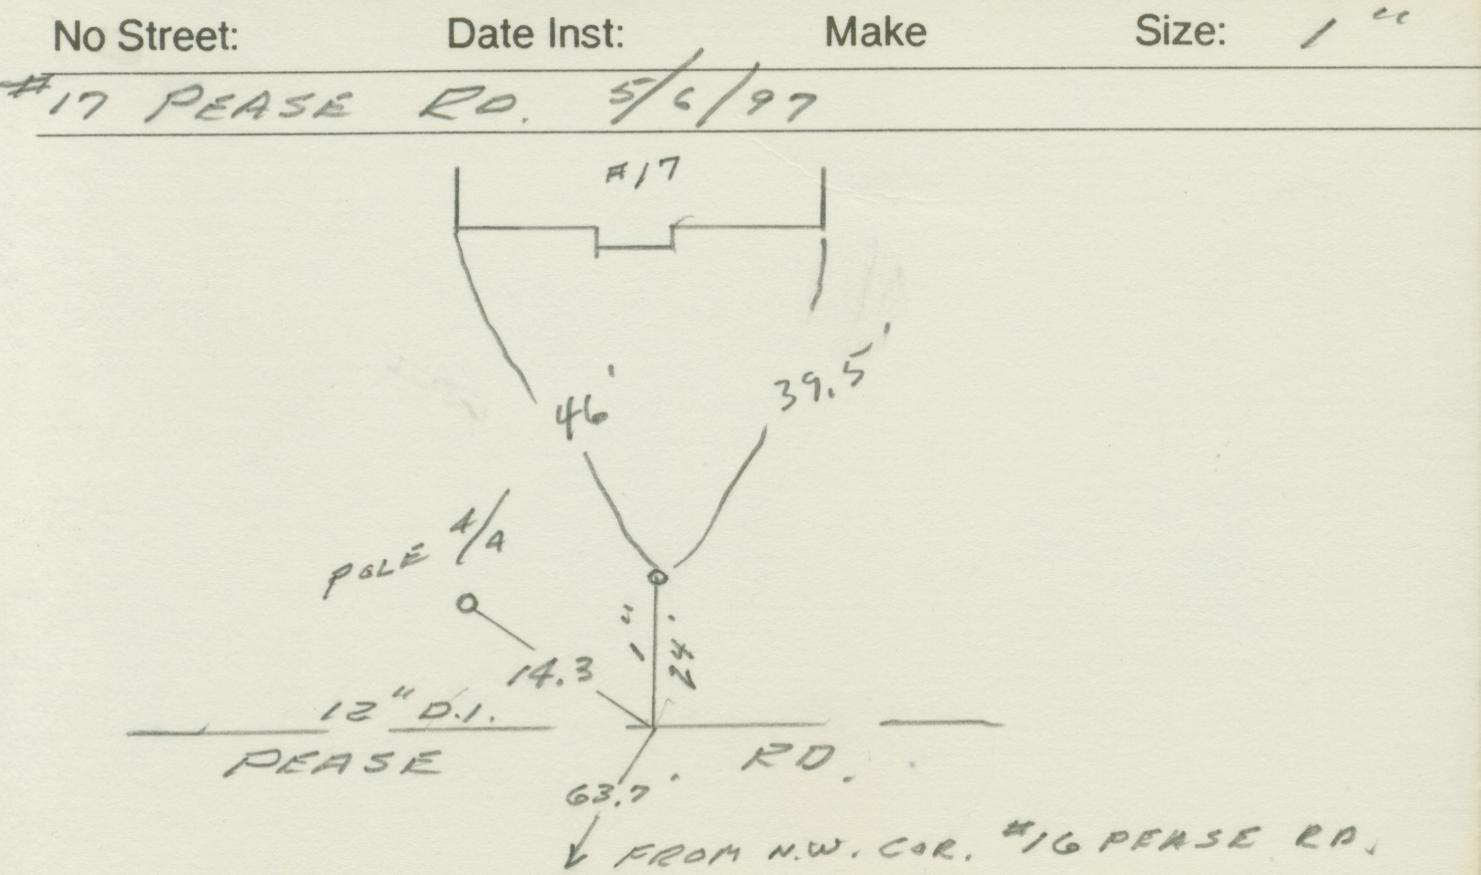 No Street: Date Inst: Make Size: 1"
#17 PEASE RD. 5/6/97
#17
46'
39.5'
POLE 4/A
1"
24'
14.3
12" D.I.
PEASE RD.
63.7'
FROM N.W. COR. #16 PEASE RD.